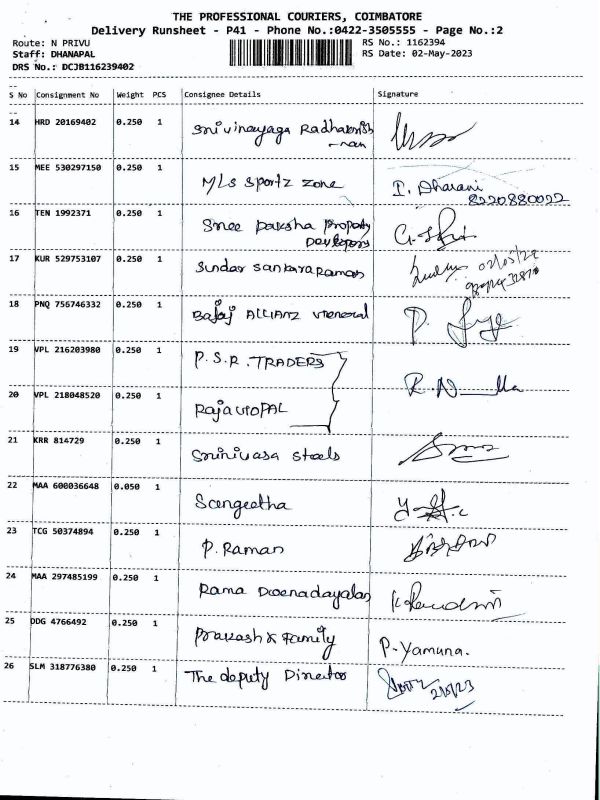 THE PROFESSIONAL COURIERS, COIMBATORE
Delivery Runsheet - P41 - Phone No.:0422-3505555 - Page No.:2
Route: N PRIVU RS No.: 1162394
Staff: DHANAPAL RS Date: 02-May-2023
DRS No.: DCJB116239402
S No Consignment No Weight PCS Consignee Details Signature
14 HRD 20169402 0.250 1 Srivinayaga Radhakrish
-nan
15 MEE 530297150 0.250 1 M/s Sportz zone I. Dharani
8220880022
16 TEN 1992371 0.250 1 Sree Daksha Property
Developers
17 KUR 529753107 0.250 1 Sundar Sankara Raman
18 PNQ 756746332 0.250 1 Bajaj ALLIANZ General P.
19 VPL 216203980 0.250 1 P.S.R. TRADERS
20 VPL 218048520 0.250 1 RajaGOPAL
21 KRR 814729 0.250 1 Srinivasa steels
22 MAA 600036648 0.050 1 Sangeetha
23 TCG 50374894 0.250 1 P. Raman
24 MAA 297485199 0.250 1 Rama Deenadayalan
25 DDG 4766492 0.250 1 Prakash & Family P. Yamuna.
26 SLM 318776380 0.250 1 The deputy Director 2/5/23